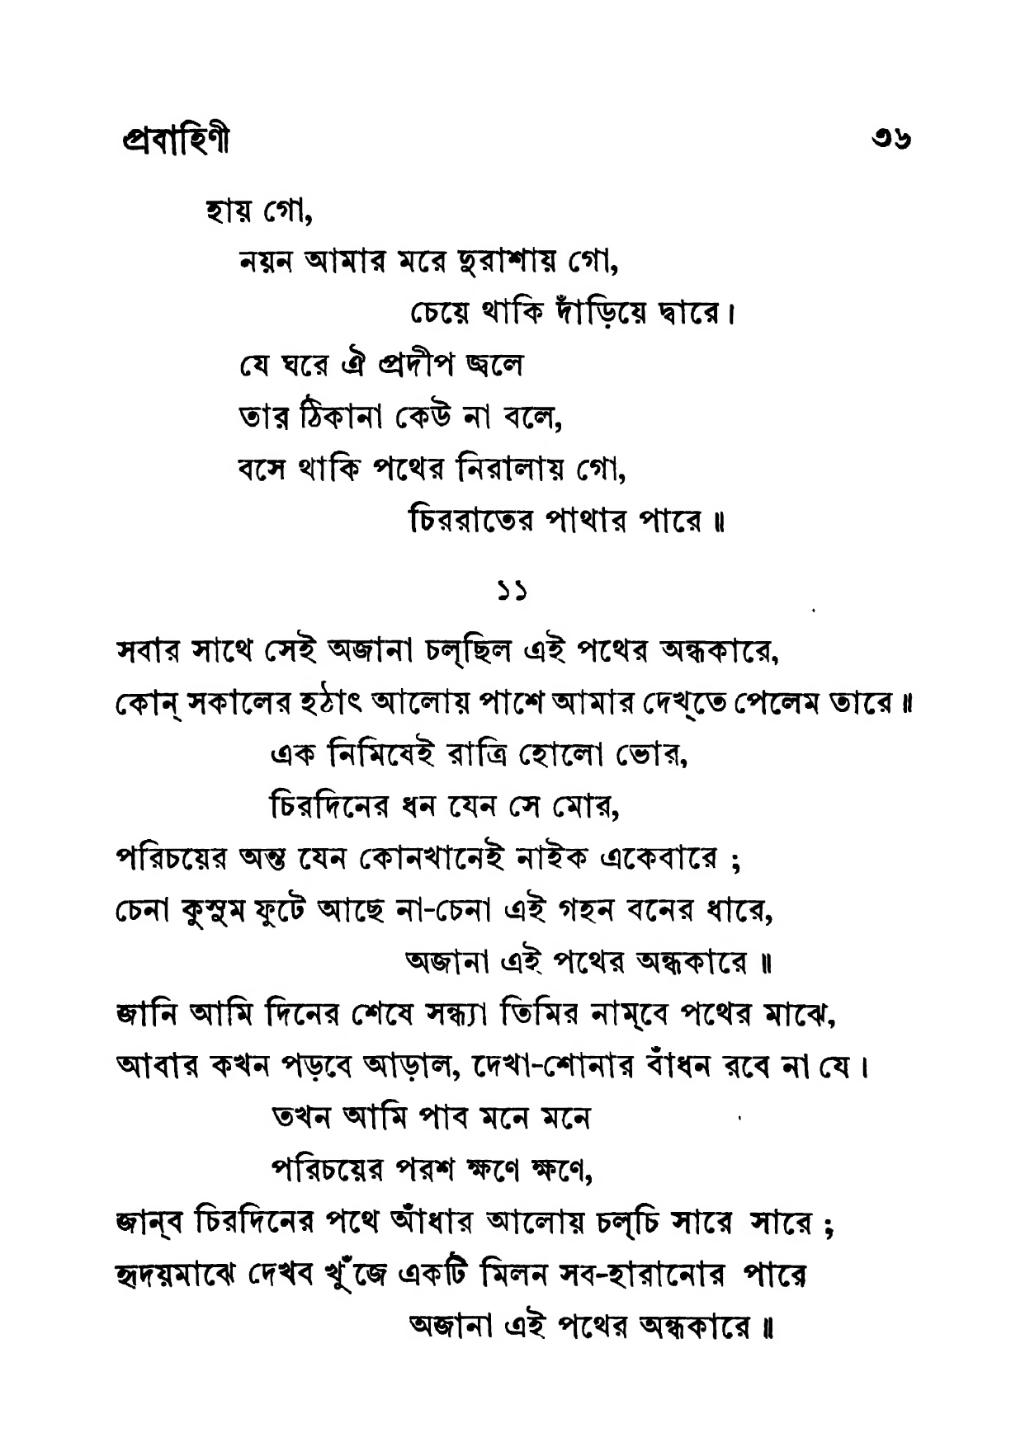 প্রবাহিণী ৩৬
হায় গো,
নয়ন আমার মরে দুরাশায় গো,
চেয়ে থাকি দাঁড়িয়ে দ্বারে।
যে ঘরে ঐ প্রদীপ জ্বলে
তার ঠিকানা কেউ না বলে,
বসে থাকি পথের নিরালায় গো,
চিররাতের পাথার পারে॥
১১
সবার সাথে সেই অজানা চল্‌ছিল এই পথের অন্ধকারে,
কোন্ সকালের হঠাৎ আলোয় পাশে আমার দেখ্‌তে পেলেম তারে॥
এক নিমিষেই রাত্রি হোলো ভোর,
চিরদিনের ধন যেন সে মোর,
পরিচয়ের অন্ত যেন কোনখানেই নাইক একেবারে ;
চেনা কুসুম ফুটে আছে না-চেনা এই গহন বনের ধারে,
অজানা এই পথের অন্ধকারে॥
জানি আমি দিনের শেষে সন্ধ্যা তিমির নাম্‌বে পথের মাঝে,
আবার কখন পড়বে আড়াল, দেখা-শোনার বাঁধন রবে না যে।
তখন আমি পাব মনে মনে
পরিচয়ের পরশ ক্ষণে ক্ষণে,
জান্‌ব চিরদিনের পথে আঁধার আলোয় চল্‌চি সারে সারে ;
হৃদয়মাঝে দেখব খুঁজে একটি মিলন সব-হারানোর পারে
অজানা এই পথের অন্ধকারে॥